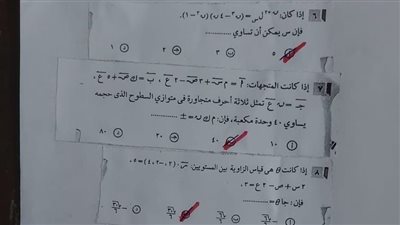 ٦ إذا كان: ن+٢ل س = (ن٣ - ٤ ن) (ن٢ - ١)،
فإن س يمكن أن تساوي ............
أ ٥ ب ٣ ج ٢ د ١
٧ إذا كانت المتجهات: أ = م س + ٣ ص - ٢ ع، ب = ك ص + ٥ ع،
جـ = ن ع تمثل ثلاثة أحرف متجاورة في متوازي السطوح الذي حجمه
يساوي ٤٠ وحدة مكعبة، فإن: م ك ن = ± ............
أ ١٠ ب ٤٠ ج ٢٠ د ٨٠
٨ إذا كانت θ هي قياس الزاوية بين المستويين: س · (٢، -٢، ٤) = ٥،
٢ س + ص - ٢ ع = ٣،
فإن: جا θ = ............